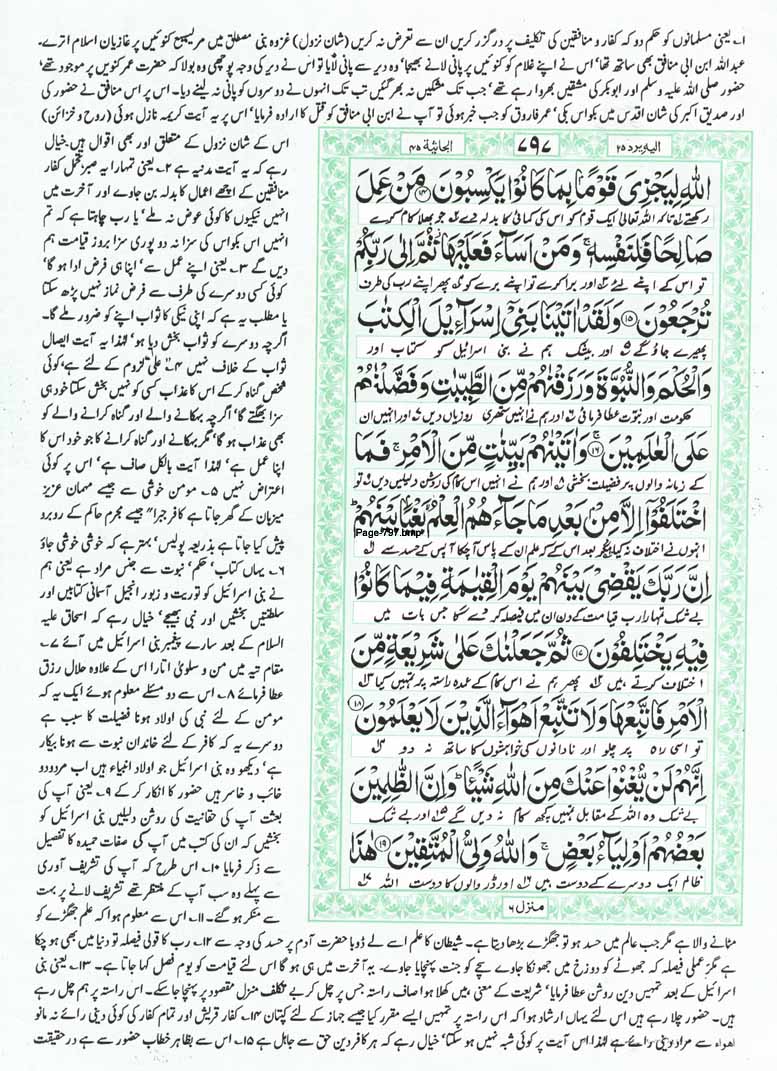 ۱۔ یعنی مسلمانوں کو حکم دو کہ کفار و منافقین کی تکلیف پر درگزر کریں ان سے تعرض نہ کریں (شان نزول) غزوہ بنی مصطلق میں مریسیع کنوئیں پر غازیان اسلام اترے۔
عبداللہ ابن ابی منافق بھی ساتھ تھا' اس نے اپنے غلام کو کنوئیں پر پانی لانے بھیجا' وہ دیر سے پانی لایا تو اس نے دیر کی وجہ پوچھی وہ بولا کہ حضرت عمر کنویں پر موجود تھے'
حضور صلی اللہ علیہ و سلم اور ابوبکر کی مشقیں بھروا رہے تھے' جب تک مشکیں نہ بھر گئیں تب تک انہوں نے دوسروں کو پانی نہ لینے دیا۔ اس پر اس منافق نے حضور کی
اور صدیق اکبر کی شان اقدس میں بکواس بکی' عمر فاروق کو جب خبر ہوئی تو آپ نے ابن ابی منافق کو قتل کا ارادہ فرمایا' اس پر یہ آیت کریمہ نازل ہوئی (روح و خزائن)
الیہ یرد ۲۵
۷۹۷
الجاثیة ۴۵
اللهِ لِيَجْزِيَ قَوْمًا بِمَا كَانُوْا يَكْسِبُوْنَ ۝۱۴ مَنْ عَمِلَ
رکھتے تاکہ اللہ تعالٰی ایک قوم کو اس کی کمائی کا بدلہ دے جو بھلا کام کرے
صَالِحًا فَلِنَفْسِهٖ ۚ وَمَنْ اَسَآءَ فَعَلَيْهَا ۫ ثُمَّ اِلٰى رَبِّكُمْ
تو اس کے اپنے لئے اور برا کرے تو اپنے برے کو پھر اپنے رب کی طرف
تُرْجَعُوْنَ ۝۱۵ وَلَقَدْ اٰتَيْنَا بَنِيْٓ اِسْرَآءِيْلَ الْكِتٰبَ
پھیرے جاؤ گے اور بیشک ہم نے بنی اسرائیل کو کتاب اور
وَالْحُكْمَ وَالنُّبُوَّةَ وَرَزَقْنٰهُمْ مِّنَ الطَّيِّبٰتِ وَفَضَّلْنٰهُمْ
حکومت اور نبوت عطا فرمائی اور ہم نے انہیں ستھری روزیاں دیں اور انہیں ان
عَلَى الْعٰلَمِيْنَ ۝۱۶ وَاٰتَيْنٰهُمْ بَيِّنٰتٍ مِّنَ الْاَمْرِ ۚ فَمَا
کے زمانہ والوں پر فضیلت بخشی اور ہم نے انہیں اس کام کی روشن دلیلیں دیں تو
اخْتَلَفُوْٓا اِلَّا مِنْۢ بَعْدِ مَا جَآءَهُمُ الْعِلْمُ بَغْيًۢا بَيْنَهُمْ ؕ
Page-797.bmp
انہوں نے اختلاف نہ کیا مگر بعد اس کے کہ علم ان کے پاس آ چکا آپس کے حسد سے
اِنَّ رَبَّكَ يَقْضِيْ بَيْنَهُمْ يَوْمَ الْقِيٰمَةِ فِيْمَا كَانُوْا
بے شک تمہارا رب قیامت کے دن ان میں فیصلہ کر دے گا جس بات میں
فِيْهِ يَخْتَلِفُوْنَ ۝۱۷ ثُمَّ جَعَلْنٰكَ عَلٰى شَرِيْعَةٍ مِّنَ
اختلاف کرتے ہیں پھر ہم نے اس کام کے عمدہ راستہ پر تمہیں کیا
الْاَمْرِ فَاتَّبِعْهَا وَلَا تَتَّبِعْ اَهْوَآءَ الَّذِيْنَ لَا يَعْلَمُوْنَ ۝۱۸
تو اسی راہ پر چلو اور نادانوں کی خواہشوں کا ساتھ نہ دو
اِنَّهُمْ لَنْ يُّغْنُوْا عَنْكَ مِنَ اللهِ شَيْـًٔا ؕ وَاِنَّ الظّٰلِمِيْنَ
بے شک وہ اللہ کے مقابل تمہیں کچھ کام نہ دیں گے اور بے شک
بَعْضُهُمْ اَوْلِيَآءُ بَعْضٍ ۚ وَاللهُ وَلِيُّ الْمُتَّقِيْنَ ۝۱۹ هٰذَا
ظالم ایک دوسرے کے دوست ہیں اور ڈر والوں کا دوست اللہ
منزل ۶
اس کے شان نزول کے متعلق اور بھی اقوال ہیں خیال
رہے کہ یہ آیت مدنیہ ہے ۲۔ یعنی تمہارا یہ صبر تحمل کفار
منافقین کے اچھے اعمال کا بدلہ بن جاوے اور آخرت میں
انہیں نیکیوں کا کوئی عوض نہ ملے' یا رب چاہتا ہے کہ تم
انہیں اس بکواس کی سزا نہ دو پوری سزا بروز قیامت ہم
دیں گے ۳۔ یعنی اپنے عمل سے' اپنا ہی فرض ادا ہو گا'
کوئی کسی دوسرے کی طرف سے فرض نماز نہیں پڑھ سکتا
یا مطلب یہ ہے کہ اپنی نیکی کا ثواب اپنے کو ضرور ملے گا۔
اگرچہ دوسرے کو ثواب بخش دیا ہو' لہٰذا یہ آیت ایصال
ثواب کے خلاف نہیں ۴۔ علیٰ لزوم کے لئے ہے' کوئی
شخص گناہ کر کے اس کا عذاب کسی کو نہیں بخش سکتا خود ہی
سزا بھگتے گا' اگرچہ بہکانے والے اور گناہ کرانے والے کو
بھی عذاب ہو گا' مگر بہکانے اور گناہ کرانے کا جو خود اس کا
اپنا عمل ہے' لہٰذا آیت بالکل صاف ہے' اس پر کوئی
اعتراض نہیں ۵۔ مومن خوشی سے جیسے مہمان عزیز
میزبان کے گھر جاتا ہے کافر جبراً جیسے مجرم حاکم کے روبرو
پیش کیا جاتا ہے بذریعہ پولیس' بہتر ہے کہ خوشی خوشی جاؤ
۶۔ یہاں کتاب' حکم' نبوت سے جنس مراد ہے یعنی ہم
نے بنی اسرائیل کو توریت و زبور انجیل آسمانی کتابیں اور
سلطنتیں بخشیں اور نبی بھیجے' خیال رہے کہ اسحاق علیہ
السلام کے بعد سارے پیغمبر بنی اسرائیل میں آئے ۷۔
مقام تیہ میں من و سلویٰ اتارا اس کے علاوہ حلال رزق
عطا فرمائے ۸۔ اس سے دو مسئلے معلوم ہوئے ایک یہ کہ
مومن کے لئے نبی کی اولاد ہونا فضیلت کا سبب ہے
دوسرے یہ کہ کافر کے لئے خاندان نبوت سے ہونا بیکار
ہے' دیکھو وہ بنی اسرائیل جو اولاد انبیاء ہیں اب مردود و
خائب و خاسر ہیں حضور کا انکار کر کے ۹۔ یعنی آپ کی
بعثت آپ کی حقانیت کی روشن دلیلیں بنی اسرائیل کو
بخشیں کہ ان کی کتب میں آپ کی صفات حمیدہ کا تفصیل
سے ذکر فرمایا ۱۰۔ اس طرح کہ آپ کی تشریف آوری
سے پہلے وہ سب آپ کے منتظر تھے تشریف لانے پر بہت
سے منکر ہو گئے۔ ۱۱۔ اس سے معلوم ہوا کہ علم جھگڑے کو
مٹانے والا ہے مگر جب عالم میں حسد ہو تو جھگڑے بڑھا دیتا ہے۔ شیطان کا علم اسے لے ڈوبا حضرت آدم پر حسد کی وجہ سے ۱۲۔ رب کا قولی فیصلہ تو دنیا میں بھی ہو چکا
ہے مگر عملی فیصلہ کہ جھوٹے کو دوزخ میں جھونکا جاوے سچے کو جنت پہنچایا جاوے۔ یہ آخرت میں ہی ہو گا اس لئے قیامت کو یوم فصل کہا جاتا ہے۔ ۱۳۔ یعنی بنی
اسرائیل کے بعد تمہیں دین روشن عطا فرمایا' شریعت کے معنی ہیں کھلا ہوا صاف راستہ جس پر چل کر بے تکلف منزل مقصود پر پہنچا جا سکے۔ اس راستہ پر ہم چل رہے
ہیں۔ حضور چلا رہے ہیں اس لئے یہاں ارشاد ہوا کہ اس راستہ پر تمہیں ایسے مقرر کیا جیسے جہاز کے لئے کپتان ۱۴۔ کفار قریش اور تمام کفار کی کوئی دینی رائے نہ مانو
اھواء سے مراد دینی رائے ہے لہٰذا اس آیت پر کوئی شبہ نہیں ہو سکتا' خیال رہے کہ ہر کافر دین حق سے جاہل ہے ۱۵۔ اس سے بظاہر خطاب حضور سے ہے در حقیقت